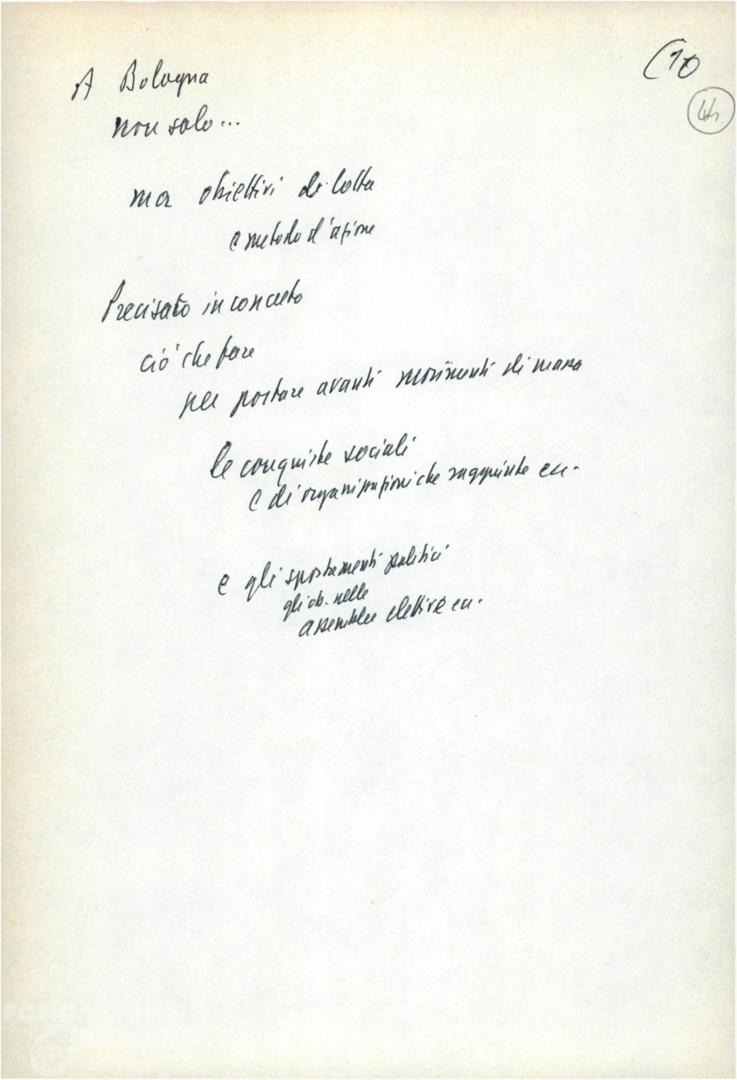 (10
44
A Bologna
non solo...
ma obiettivi di lotta
e metodo d'azione
Precisato in concreto
ciò che fare
per portare avanti movimenti di massa
le conquiste sociali
e di organizzazioni che raggiunte ecc.
e gli spostamenti politici
gli ob. nelle
assemblee elettive ecc.